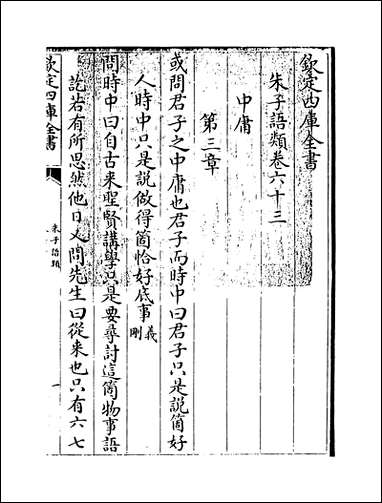 欽定四庫全書
朱子語類卷六十三
中庸
第三章
或問君子之中庸也君子而時中曰君子只是說箇好
人時中只是說做得箇恰好底事義剛
問時中曰自古來聖賢講學只是要尋討這箇物事語
訖若有所思然他日又問先生曰從來也只有六七
欽定四庫全書
朱子語類
一